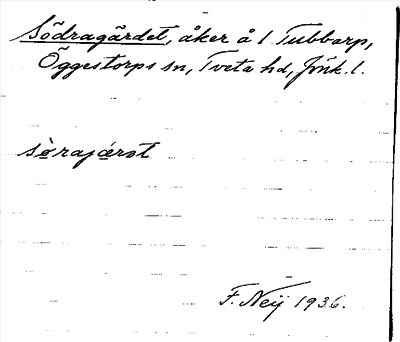 Södragärdet, åker å 1 Tubbarp,
Öggestorps sn, Tveta hd, Jönk. l.
sòrajærət
F. Neij 1936.